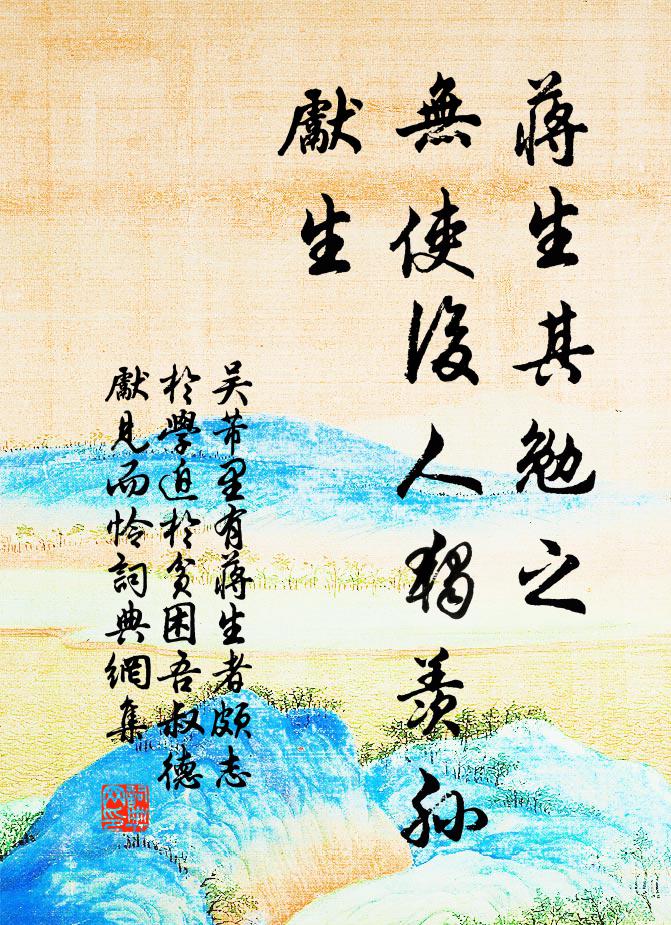 蔣生其勉之
無使後人獨羨孫
獻生
吳芾里有蔣生者頗志
於學迫於貧困吾叔德
獻見而憐詞典網集